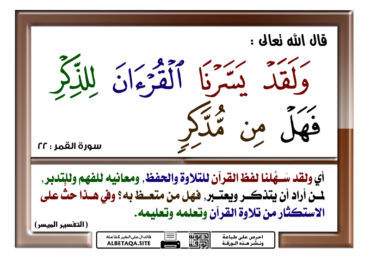 قال الله تعالى :
وَلَقَدۡ يَسَّرۡنَا ٱلۡقُرۡءَانَ لِلذِّكۡرِ
فَهَلۡ مِن مُّدَّكِرٖ
سورة القمر : ٢٢
أي ولقد سَهَّلنا لفظ القرآن للتلاوة والحفظ، ومعانيه للفهم وللتدبر،
لمن أراد أن يتذكر ويعتبر، فهل من متعظ به؟ وفي هذا حثٌ على
الاستكثار من تلاوة القرآن وتعلمه وتعليمه.
( التفسير الميسر )
احرص على طباعة
ونشر هذه الورقة
فالدال على الخير كفاعله
ALBETAQA.SITE